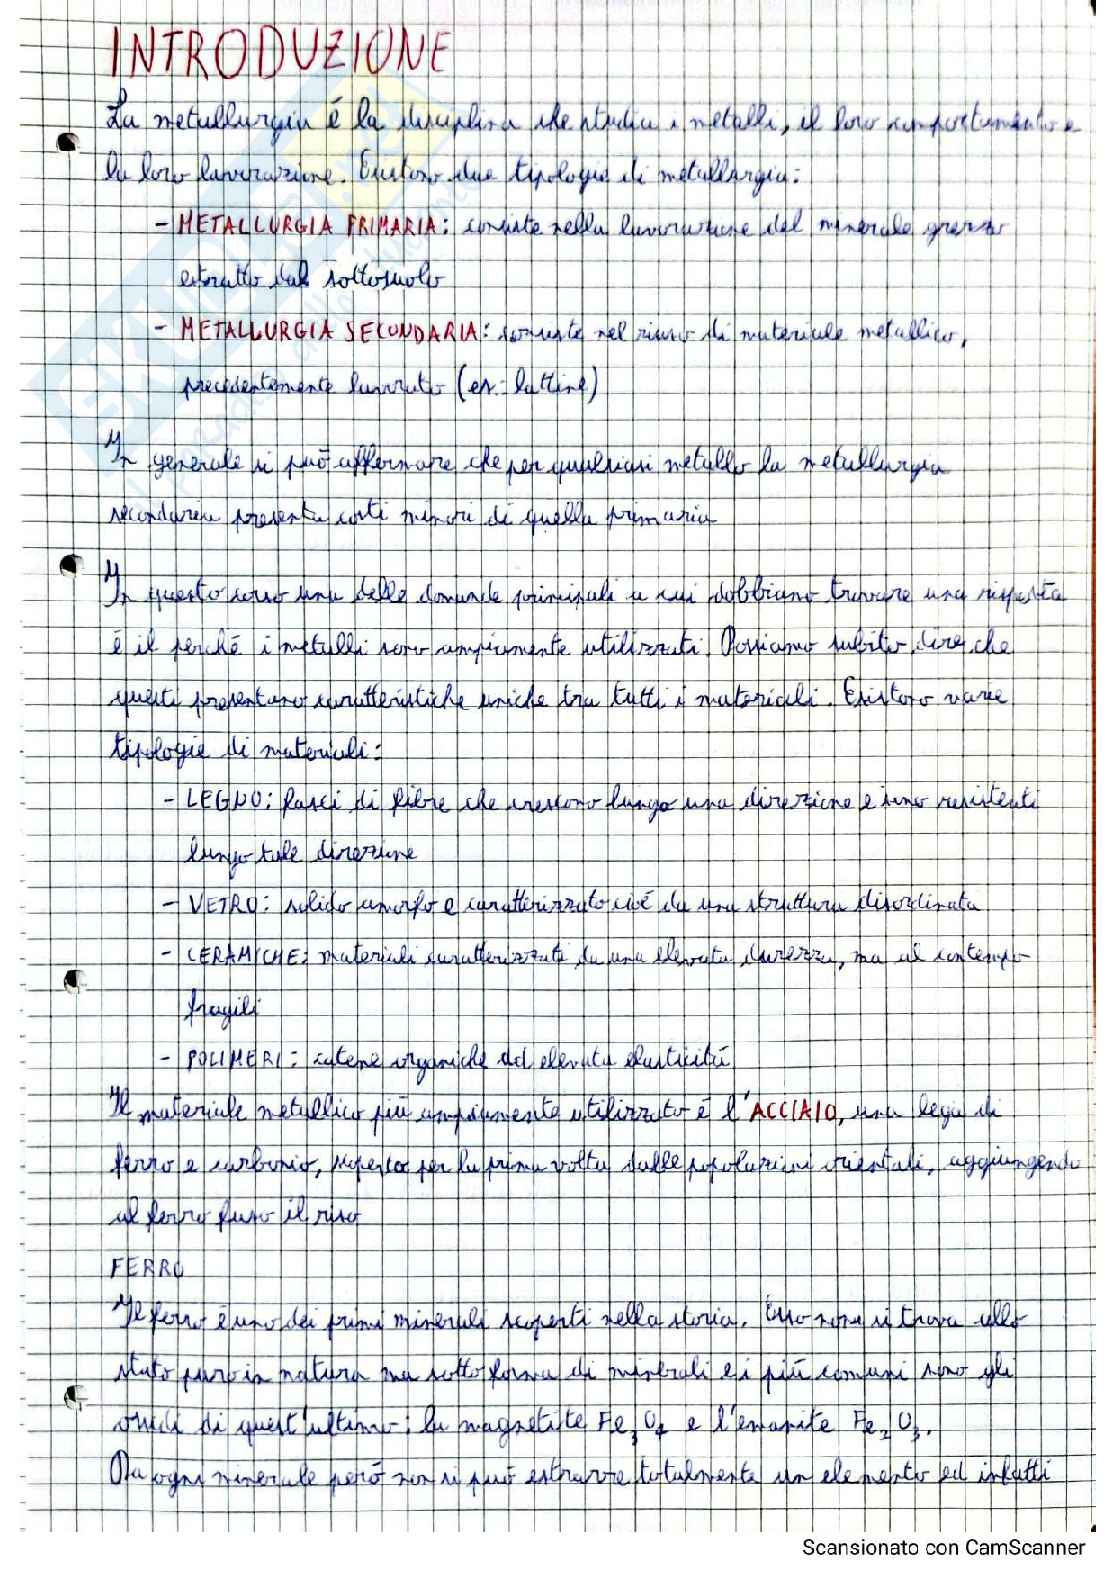 INTRODUZIONE
La metallurgia é la disciplina che studia i metalli, il loro comportamento e
la loro lavorazione. Esistono due tipologie di metallurgia:
- METALLURGIA PRIMARIA: consiste nella lavorazione del minerale grezzo
estratto dal sottosuolo
- METALLURGIA SECONDARIA: consiste nel riuso di materiale metallico,
precedentemente lavorato (es: lattine)
In generale si può affermare che per qualsiasi metallo la metallurgia
secondaria presenta costi minori di quella primaria
In questo corso una delle domande principali a cui dobbiamo trovare una risposta
é il perché i metalli sono ampiamente utilizzati. Possiamo subito dire che
questi presentano caratteristiche uniche tra tutti i materiali. Esistono varie
tipologie di materiali:
- LEGNO: fasci di fibre che crescono lungo una direzione e sono resistenti
lungo tale direzione
- VETRO: solido amorfo e caratterizzato cioé da una struttura disordinata
- CERAMICHE: materiali caratterizzati da una elevata durezza, ma al contempo
fragili
- POLIMERI: catene organiche ad elevata elasticità
Il materiale metallico più ampiamente utilizzato é l'ACCIAIO, una lega di
ferro e carbonio, scoperta per la prima volta dalle popolazioni orientali, aggiungendo
al ferro fuso il riso
FERRO
Il ferro é uno dei primi minerali scoperti nella storia. Esso non si trova allo
stato puro in natura ma sotto forma di minerali e i più comuni sono gli
ossidi di quest'ultimo: la magnetite Fe₃O₄ e l'emanite Fe₂O₃.
Da ogni minerale però non si può estrarre totalmente un elemento ed infatti
Scansionato con CamScanner